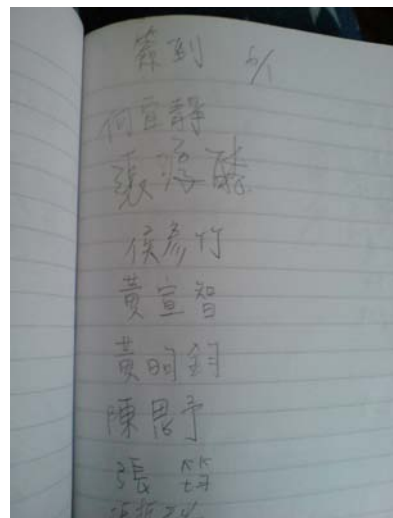 簽到 5/1
何宜靜
侯彥竹
黃宣智
黃明鈞
陳思予
張